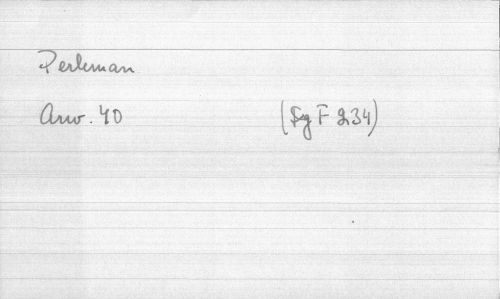 Perlman
Arw. 40 (Sg F 234)